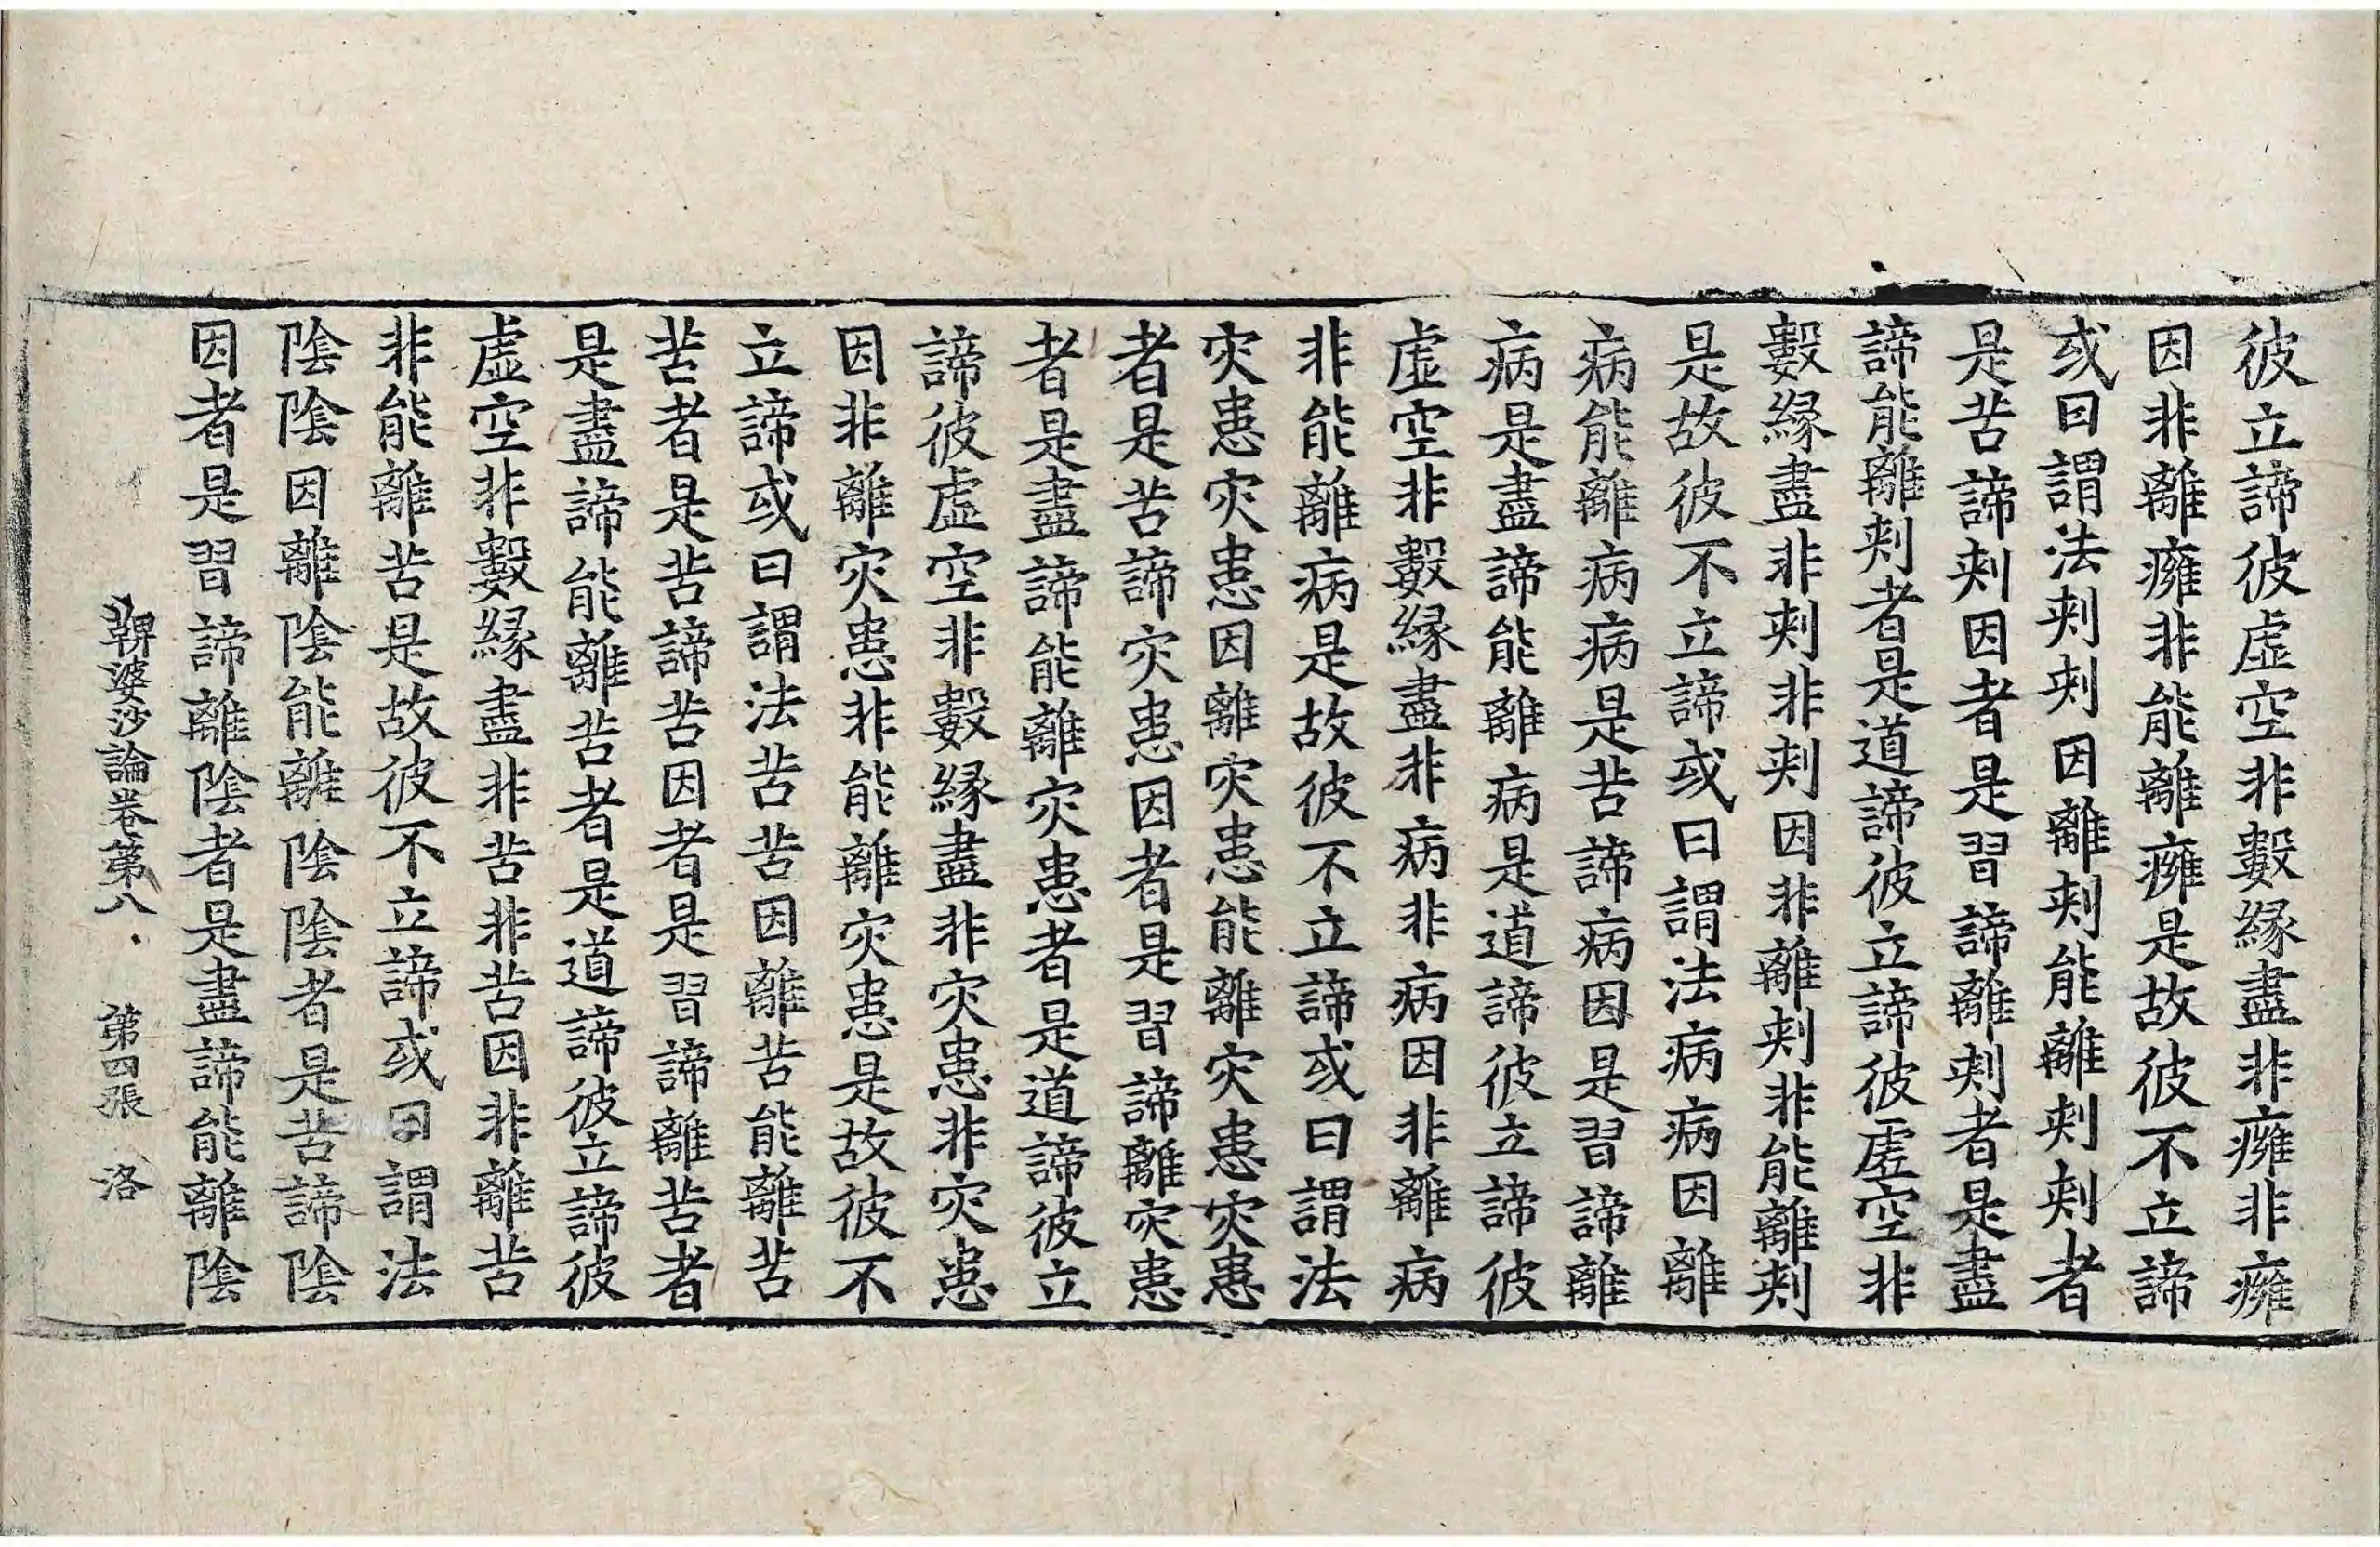 彼立諦彼虛空非數緣盡非癰非癰
因非離癰非能離癰是故彼不立諦
或曰謂法刾刾因離刾能離刾刾者
是苦諦刾因者是習諦離刾者是盡
諦能離刾者是道諦彼立諦彼虛空非
數緣盡非刾非刾因非離刾非能離刾
是故彼不立諦或曰謂法病病因離
病能離病病是苦諦病因是習諦離
病是盡諦能離病是道諦彼立諦彼
虛空非數緣盡非病非病因非離病
非能離病是故彼不立諦或曰謂法
灾患灾患因離灾患能離灾患灾患
者是苦諦灾患因者是習諦離灾患
者是盡諦能離灾患者是道諦彼立
諦彼虛空非數緣盡非灾患非灾患
因非離灾患非能離灾患是故彼不
立諦或曰謂法苦苦因離苦能離苦
苦者是苦諦苦因者是習諦離苦者
是盡諦能離苦者是道諦彼立諦彼
虛空非數緣盡非苦非苦因非離苦
非能離苦是故彼不立諦或曰謂法
陰陰因離陰能離陰陰者是苦諦陰
因者是習諦離陰者是盡諦能離陰
鞞婆沙論卷第八 第四張 洛